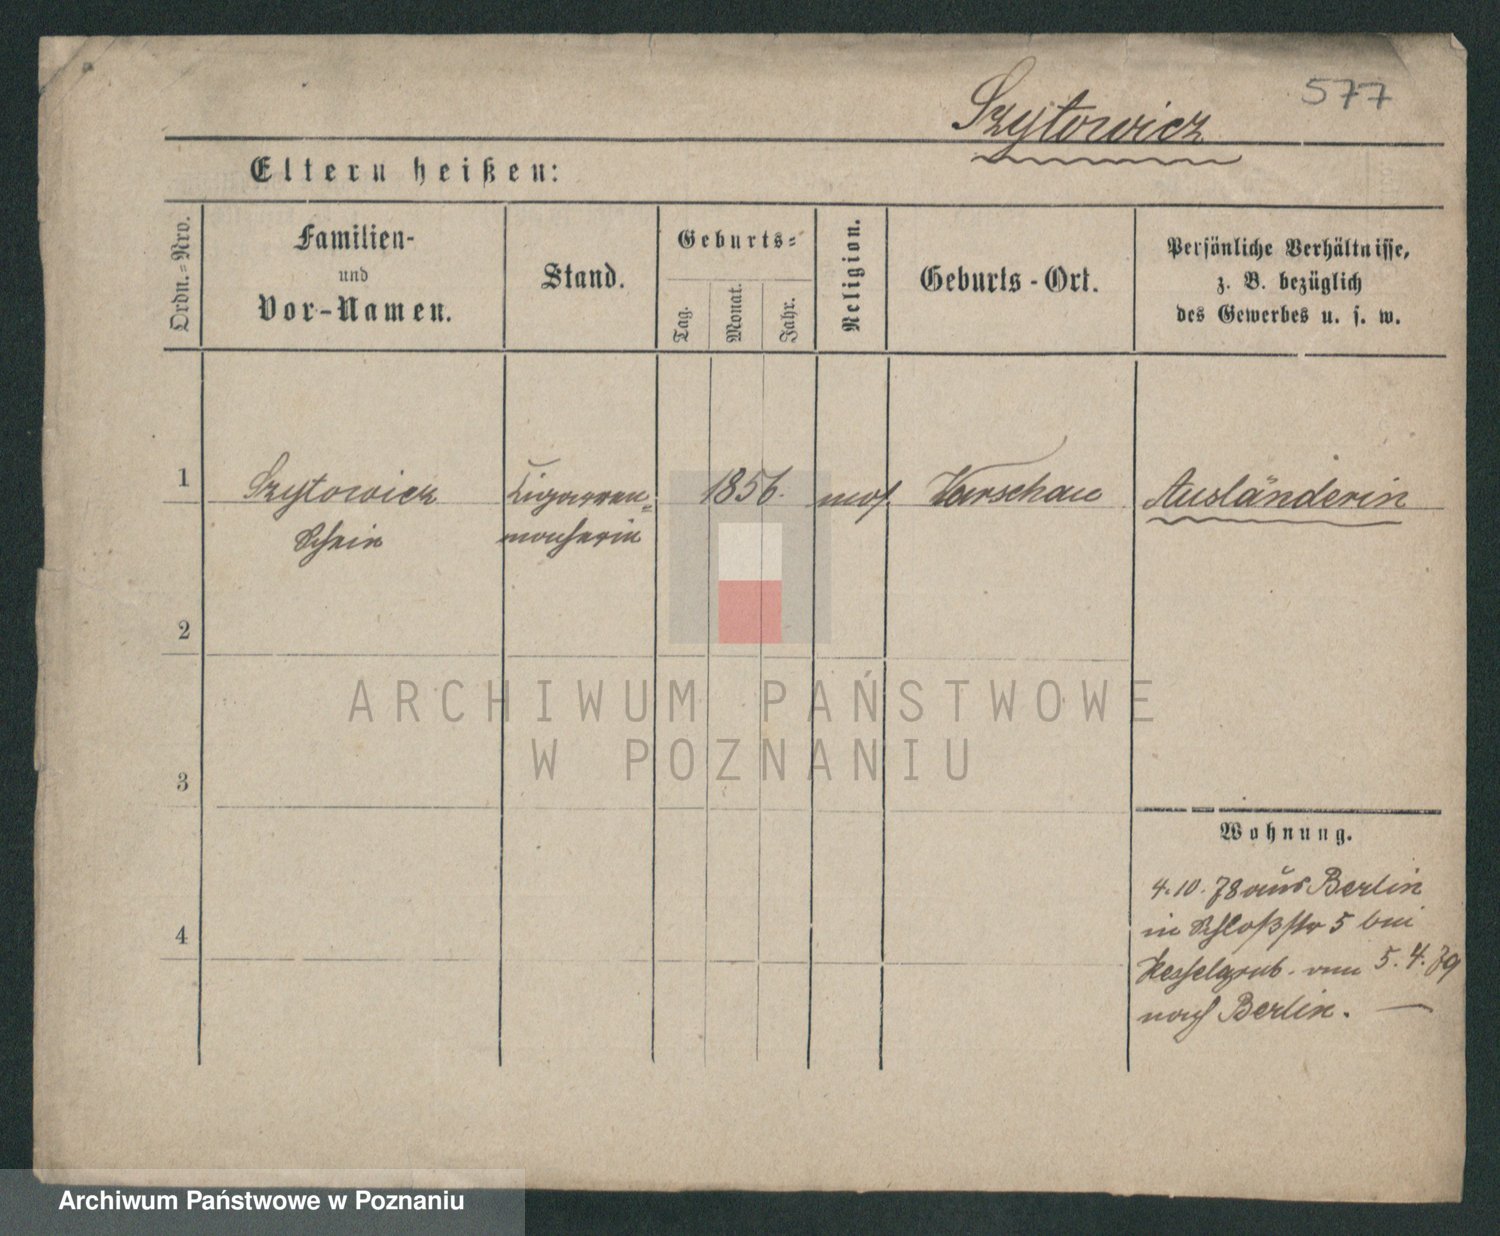 577
Szytowicz
Eltern heißen:
Ordn.=Nro.
Familien-
und
Vor-Namen.
Stand.
Geburts=
Tag.
Monat.
Jahr.
Religion.
Geburts-Ort.
Persönliche Verhältnisse,
z. B. bezüglich
des Gewerbes u. s. w.
1
Szytowicz
Schein
Cigarren=
macherin
1856.
mos.
Warschau
Ausländerin
2
3
4
Wohnung.
4.10.78 aus Berlin
in Schloßstr 5 bei
5.4.79
nach Berlin.
ARCHIWUM PAŃSTWOWE
W POZNANIU
Archiwum Państwowe w Poznaniu